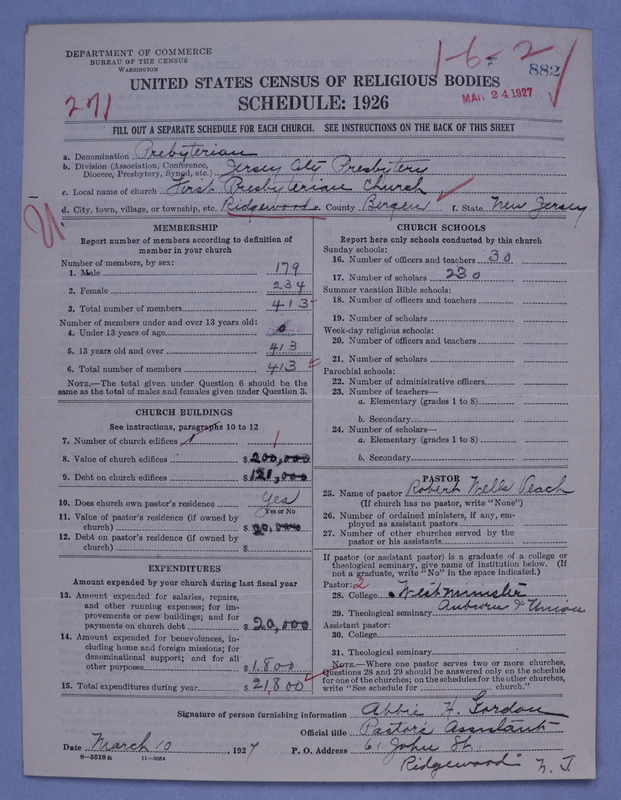 DEPARTMENT OF COMMERCE
BUREAU OF THE CENSUS
WASHINGTON
1-6-2
882
UNITED STATES CENSUS OF RELIGIOUS BODIES
MAR 24 1927
271
SCHEDULE: 1926
FILL OUT A SEPARATE SCHEDULE FOR EACH CHURCH. SEE INSTRUCTIONS ON THE BACK OF THIS SHEET
a. Denomination Prebyterian
b. Division (Association, Conference, Diocese, Presbytery, Synod, etc.) Jersey City Presbytery
c. Local name of church First Presbyterian Church
d. City, town, village, or township, etc. Ridgewood e. County Bergen f. State New Jersey
MEMBERSHIP
Report number of members according to definition of
member in your church
Number of members, by sex:
1. Male 179
2. Female 234
3. Total number of members 413
Number of members under and over 13 years old:
4. Under 13 years of age 0
5. 13 years old and over 413
6. Total number of members 413
NOTE.—The total given under Question 6 should be the
same as the total of males and females given under Question 3.
CHURCH BUILDINGS
See instructions, paragraphs 10 to 12
7. Number of church edifices 1
8. Value of church edifices $ 200,000
9. Debt on church edifices $ 121,000
10. Does church own pastor's residence Yes
Yes or No
11. Value of pastor's residence (if owned by
church) $ 20,000
12. Debt on pastor's residence (if owned by
church) $
EXPENDITURES
Amount expended by your church during last fiscal year
13. Amount expended for salaries, repairs,
and other running expenses; for im-
provements or new buildings; and for
payments on church debt $ 20,000
14. Amount expended for benevolences, in-
cluding home and foreign missions; for
denominational support; and for all
other purposes $ 1,800
15. Total expenditures during year $ 21,800
CHURCH SCHOOLS
Report here only schools conducted by this church
Sunday schools:
16. Number of officers and teachers 30
17. Number of scholars 230
Summer vacation Bible schools:
18. Number of officers and teachers
19. Number of scholars
Week-day religious schools:
20. Number of officers and teachers
21. Number of scholars
Parochial schools:
22. Number of administrative officers
23. Number of teachers—
a. Elementary (grades 1 to 8)
b. Secondary
24. Number of scholars—
a. Elementary (grades 1 to 8)
b. Secondary
PASTOR
25. Name of pastor Robert Wells Veach
(If church has no pastor, write "None")
26. Number of ordained ministers, if any, em-
ployed as assistant pastors
27. Number of other churches served by the
pastor or his assistants
If pastor (or assistant pastor) is a graduate of a college or
theological seminary, give name of institution below. (If
not a graduate, write "No" in the space indicated.)
Pastor: 2
28. College Westminster
29. Theological seminary Auburn & Union
Assistant pastor:
30. College
31. Theological seminary
NOTE.—Where one pastor serves two or more churches,
Questions 28 and 29 should be answered only on the schedule
for one of the churches; on the schedules for the other churches,
write "See schedule for church."
Signature of person furnishing information Abbie H. Gordon
Official title Pastor's Assistant
Date March 10, 1927 P. O. Address 61 John St.
Ridgewood N. J.
8—5518a 11—9664